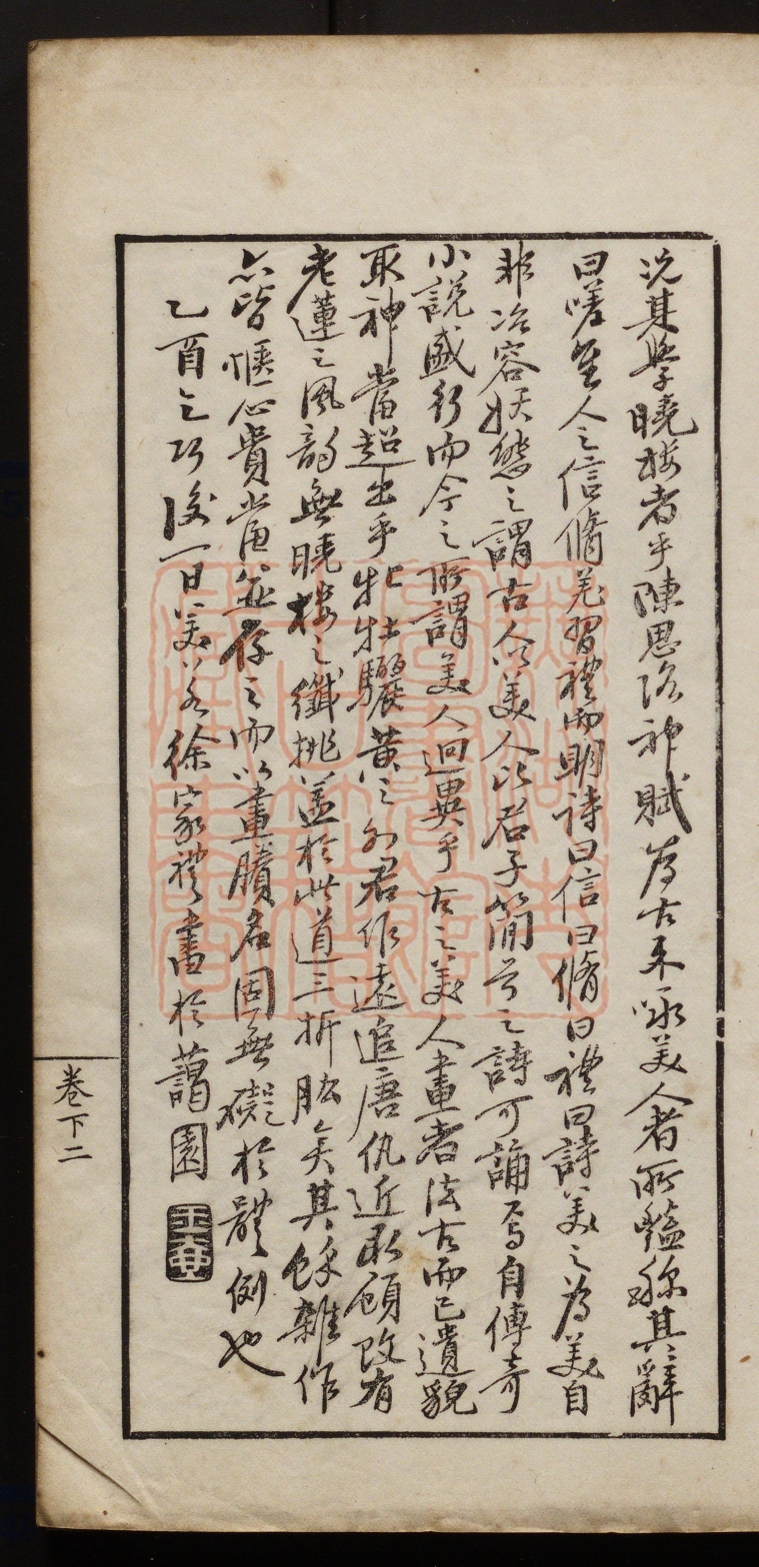 況其學曉樓者乎陳思洛神賦為古來詠美人者所豔稱其辭
曰嗟佳人之信脩羌習禮而明詩曰信曰脩曰禮曰詩美之為美自
非冶容妖態之謂古人以美人比君子簡兮之詩可誦焉自傳奇
小說盛行而今之所謂美人迥異乎古之美人畫者法古而已遺貌
取神當超出乎牝牡驪黃之外君作遠追唐仇近取顧改有
老蓮之風韻無曉樓之纖挑蓋於此道三折肱矣其餘雜作
亦皆愜心貴當並存之而以畫賸名固無礙於體例也
乙酉乞巧後一日美若徐家禮書於藹園
卷下二